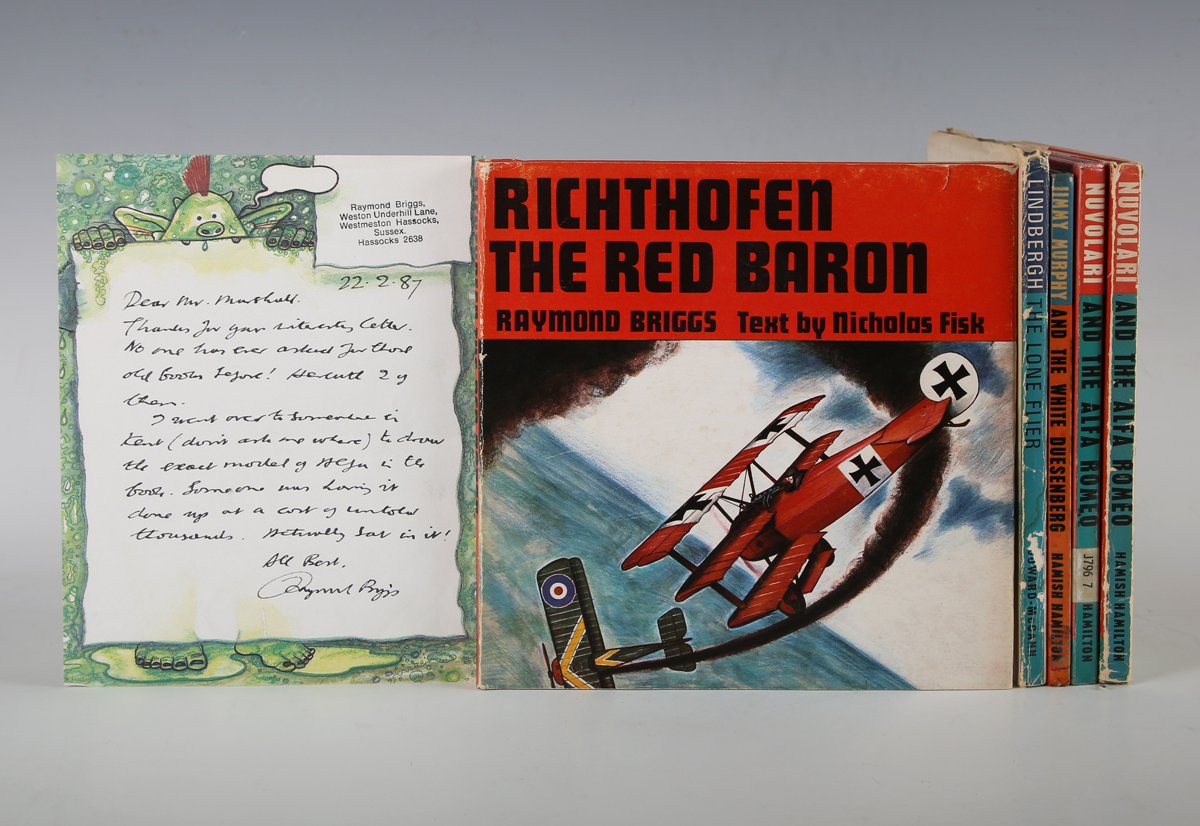 Raymond Briggs,
Weston Underhill Lane,
Westmeston Hassocks,
Sussex.
Hassocks 2638
22.2.87
Dear Mr. Marshall.
Thanks for your interesting letter.
No one has ever asked for those
old books before! Herewith 2 of
them.
I went over to somewhere in
Kent (don't ask me where) to draw
the exact model of Alfa in the
book. Someone was having it
done up at a cost of untold
thousands. Actually sat in it!
All Best.
Raymond Briggs
RICHTHOFEN
THE RED BARON
RAYMOND BRIGGS Text by Nicholas Fisk
LINDBERGH THE LONE FLIER
JIMMY MURPHY AND THE WHITE DUESENBERG HAMISH HAMILTON
NUVOLARI AND THE ALFA ROMEO J796 7 HAMILTON
NUVOLARI AND THE ALFA ROMEO HAMISH HAMILTON